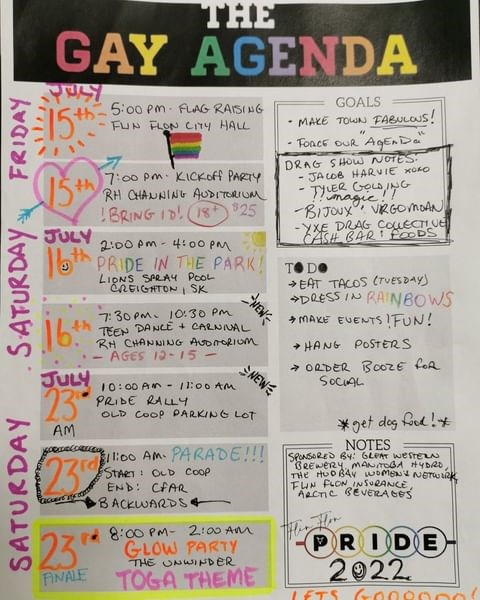 THE
GAY AGENDA
FRIDAY
JULY
15th
5:00 PM - FLAG RAISING
FLIN FLON CITY HALL
15th
7:00 PM - KICKOFF PARTY
RH CHANNING AUDITORIUM
! BRING ID! 18+ $25
SATURDAY
JULY
16th
2:00 PM - 4:00 PM
PRIDE IN THE PARK!
LIONS SPRAY POOL
CREIGHTON, SK
16th
NEW
7:30 PM - 10:30 PM
TEEN DANCE + CARNIVAL
RH CHANNING AUDITORIUM
- AGES 12-15 -
SATURDAY
JULY
23rd
AM
NEW
10:00 AM - 11:00 AM
PRIDE RALLY
OLD COOP PARKING LOT
23rd
11:00 AM - PARADE!!!
START: OLD COOP
END: CFAR
BACKWARDS
23rd
FINALE
8:00 PM - 2:00 AM
GLOW PARTY
THE UNWINDER
TOGA THEME
GOALS
- MAKE TOWN FABULOUS!
- FORCE OUR "AGENDA"
DRAG SHOW NOTES:
- JACOB HARVIE xoxo
- TYLER GOLDING
!!magic!!
- BIJOUX VIRGOMOAN
- YXE DRAG COLLECTIVE
CASH BAR & FOODS
TO DO
→ EAT TACOS (TUESDAY)
→ DRESS IN RAINBOWS
→ MAKE EVENTS! FUN!
→ HANG POSTERS
→ ORDER BOOZE FOR
SOCIAL
*get dog food!*
NOTES
SPONSORED BY: GREAT WESTERN
BREWERY, MANITOBA HYDRO,
THE HUDBAY WOMENS NETWORK,
FLIN FLON INSURANCE,
ARCTIC BEVERAGES
Flin Flon
PRIDE
2022
LETS GOOOOOO!